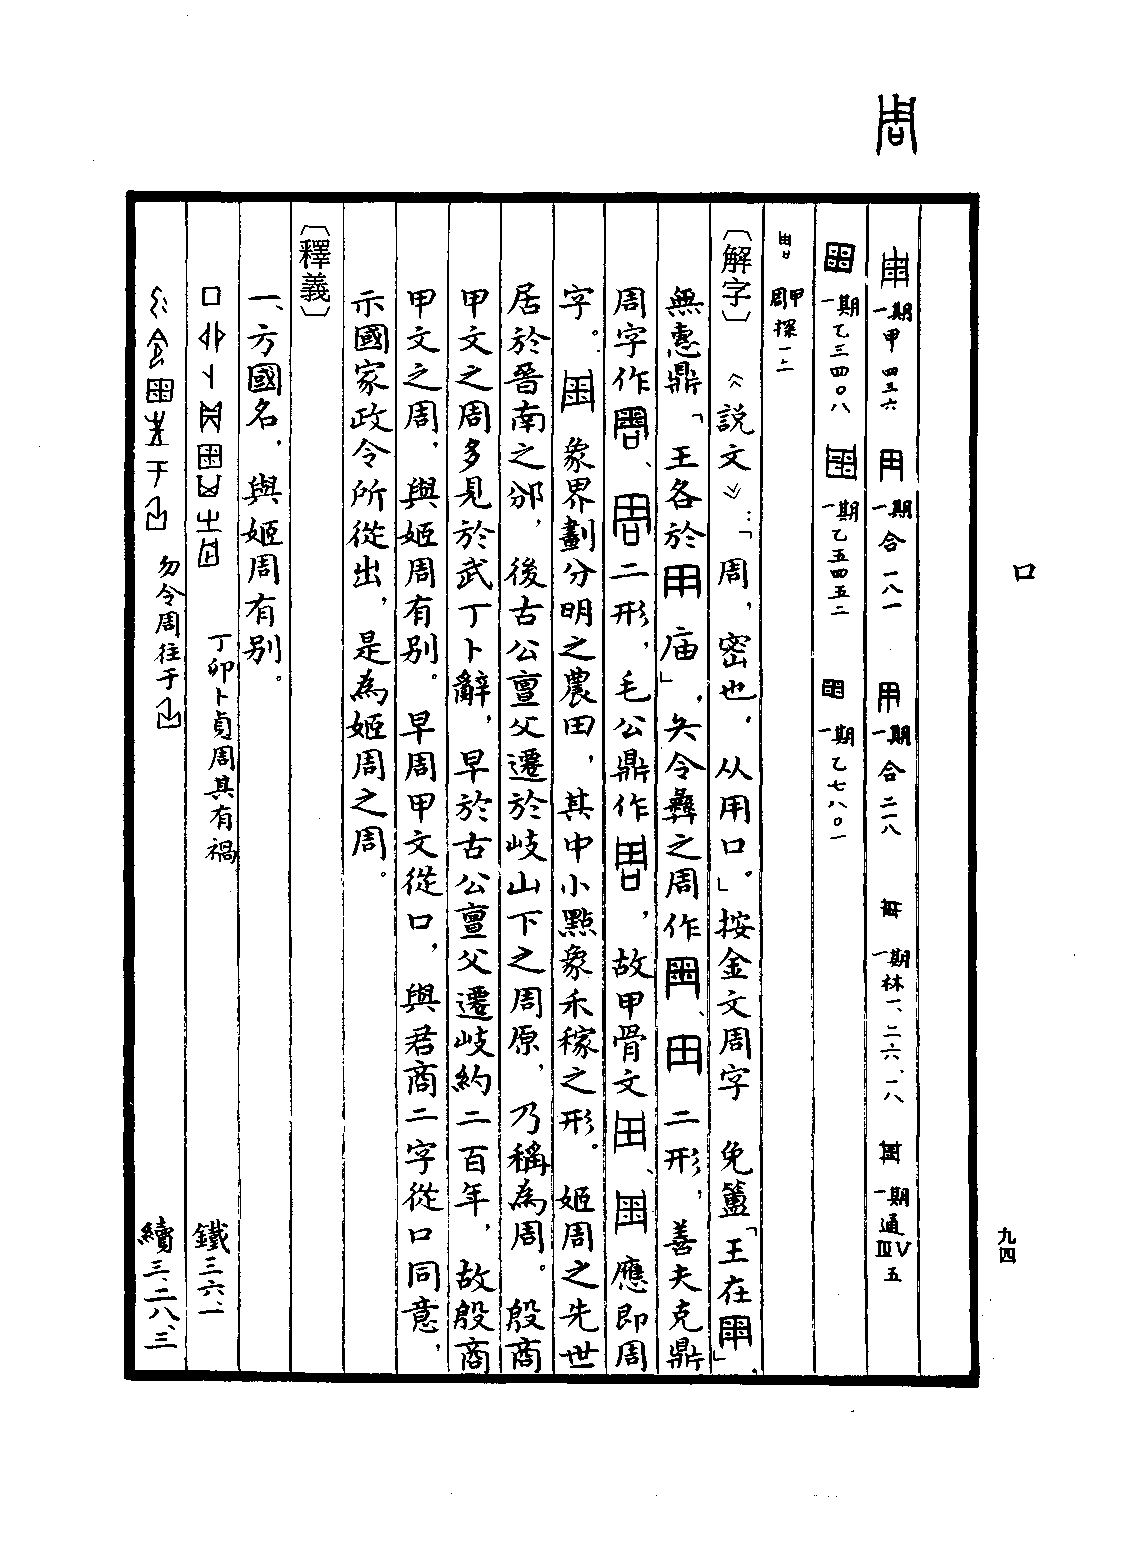 周
口
九四
一期甲四三六 一期合一八一 一期合二一八 一期林一、二六、一八 一期通ⅢⅤ五
一期乙三四〇八 一期乙五四五二 一期乙七八〇一
周甲探一二
〔解字〕《說文》：「周，密也，从用口。」按金文周字 免簠「王在」，
無叀鼎「王各於 庙」，矢令彝之周作 、 二形，善夫克鼎
周字作 、 二形，毛公鼎作 ，故甲骨文 、 應即周
字。 象界劃分明之農田，其中小點象禾稼之形。姬周之先世
居於晉南之邠，後古公亶父遷於岐山下之周原，乃稱為周。殷商
甲文之周多見於武丁卜辭，早於古公亶父遷岐約二百年，故殷商
甲文之周，與姬周有别。早周甲文從口，與君商二字從口同意，
示國家政令所從出，是為姬周之周。
〔釋義〕
一、方國名，與姬周有别。
丁卯卜貞周其有禍 鐵三六、一
勿令周往于 續三、二八、三